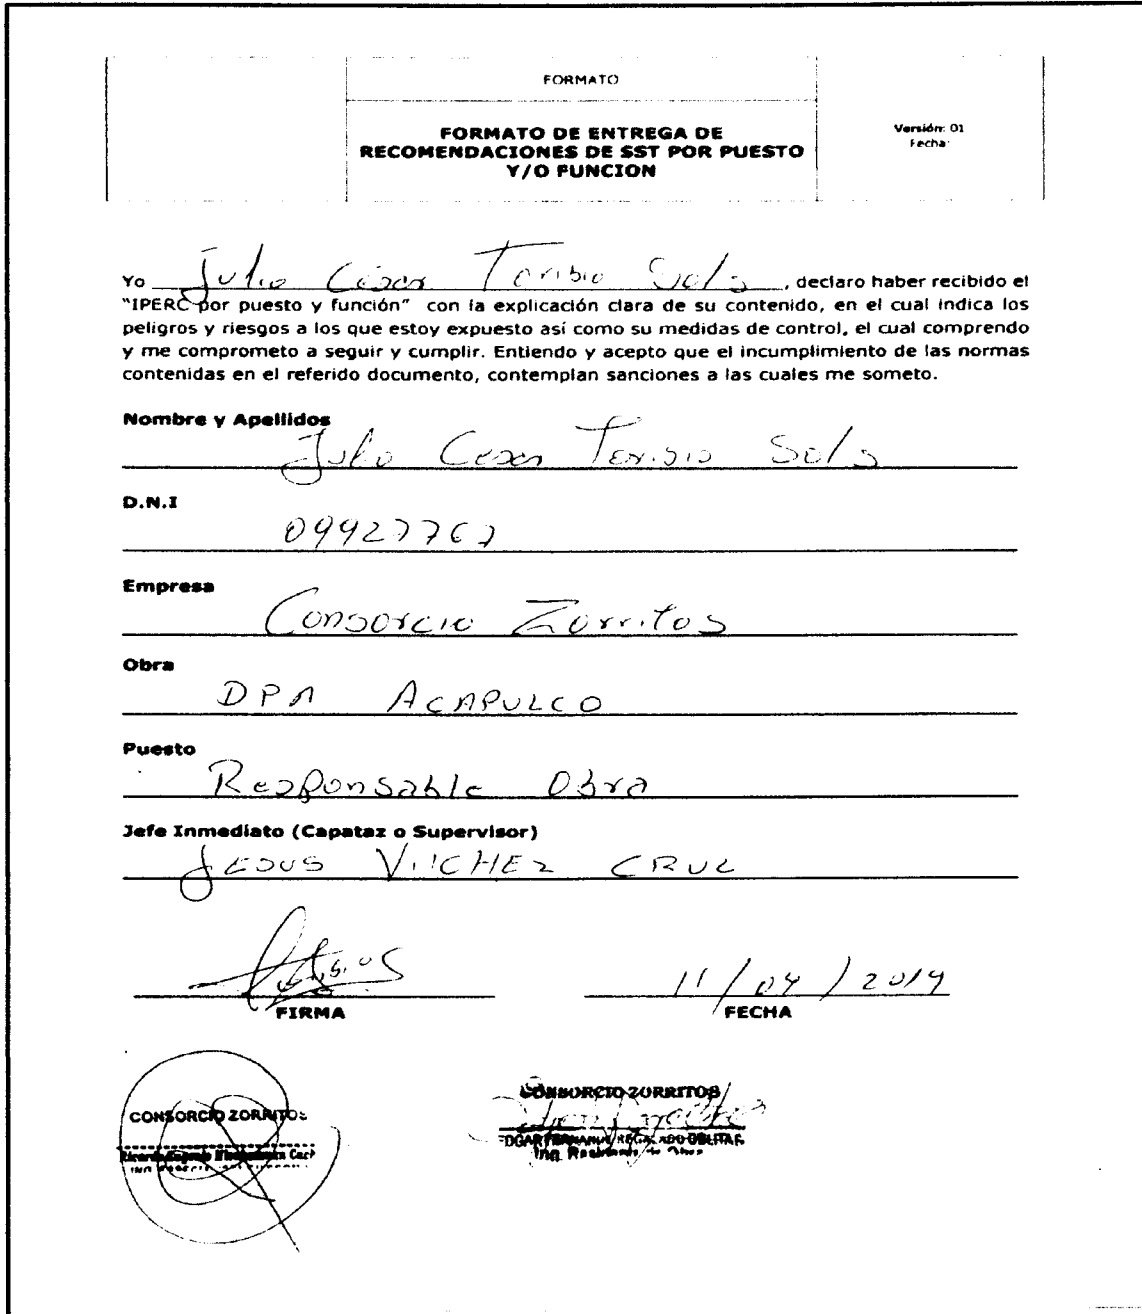 FORMATO
FORMATO DE ENTREGA DE
RECOMENDACIONES DE SST POR PUESTO
Y/O FUNCION
Versión: 01
Fecha:
Yo Julio César Toribio Sols, declaro haber recibido el
"IPERC por puesto y función" con la explicación clara de su contenido, en el cual indica los
peligros y riesgos a los que estoy expuesto así como su medidas de control, el cual comprendo
y me comprometo a seguir y cumplir. Entiendo y acepto que el incumplimiento de las normas
contenidas en el referido documento, contemplan sanciones a las cuales me someto.
Nombre y Apellidos
Julio Cesar Toribio Sols
D.N.I
09927767
Empresa
Consorcio Zorritos
Obra
DPA ACAPULCO
Puesto
Responsable Obra
Jefe Inmediato (Capataz o Supervisor)
JESUS VILCHEZ CRUZ
11/04/2019
FIRMA
FECHA
CONSORCIO ZORRITOS
CONSORCIO ZORRITOS
Ricardo Eugenio
EDGAR FERNANDO REGALADO OBLITAS
Ing. Residente de Obra